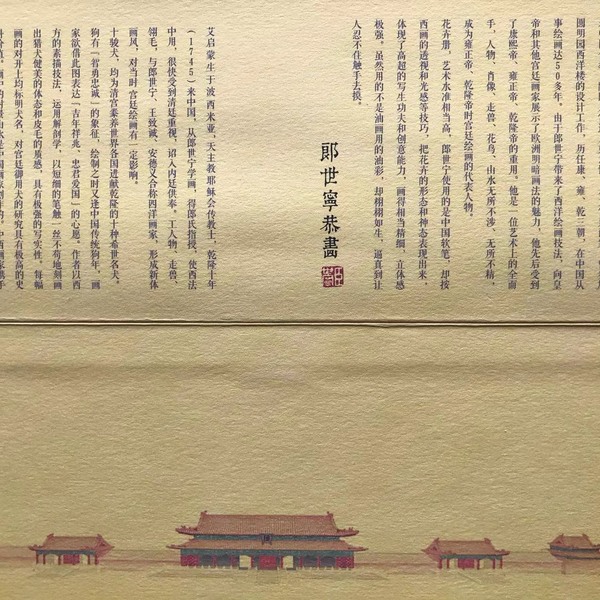 圆明园西洋楼的设计工作，历任康、雍、乾三朝，在中国从
事绘画达50多年，由于郎世宁带来了西洋绘画技法，向皇
帝和其他宫廷画家展示了欧洲明暗画法的魅力，他先后受到
了康熙帝、雍正帝、乾隆帝的重用。他是一位艺术上的全面
手，人物、肖像、走兽、花鸟、山水无所不涉、无所不精，
成为雍正帝、乾隆帝时宫廷绘画的代表人物。
花卉册，艺术水准相当高，郎世宁使用的是中国软笔，却按
西画的透视和光感等技巧，把花卉的形态和神态表现出来，
体现了高超的写生功夫和创意能力，画得相当精细，立体感
极强。虽然用的不是油画用的油彩，却栩栩如生，逼真到让
人忍不住触手去摸。
郎世寧恭畫
艾启蒙生于波西米亚，天主教耶稣会传教士，乾隆十年
（1745）来中国，从郎世宁学画，得郎氏指授，使西法
中用，很快受到清廷重视，诏入内廷供奉。工人物、走兽、
翎毛，与郎世宁、王致诚、安德义合称四洋画家，形成新体
画风，对当时宫廷绘画有一定影响。
十骏犬，均为清宫豢养世界各国进献乾隆的十种希世名犬。
狗有「智勇忠诚」的象征，绘制之时又逢中国传统狗年，画
家欲借此图表达「吉年祥兆、忠君爱国」的心愿。作者以西
方的素描技法，运用解剖学，以短细的笔触一丝不苟地刻画
出猎犬健美的体态和皮毛的质感，具有极强的写实性，每幅
画的对开上均标明犬名，对宫廷御用犬的研究具有极高的史